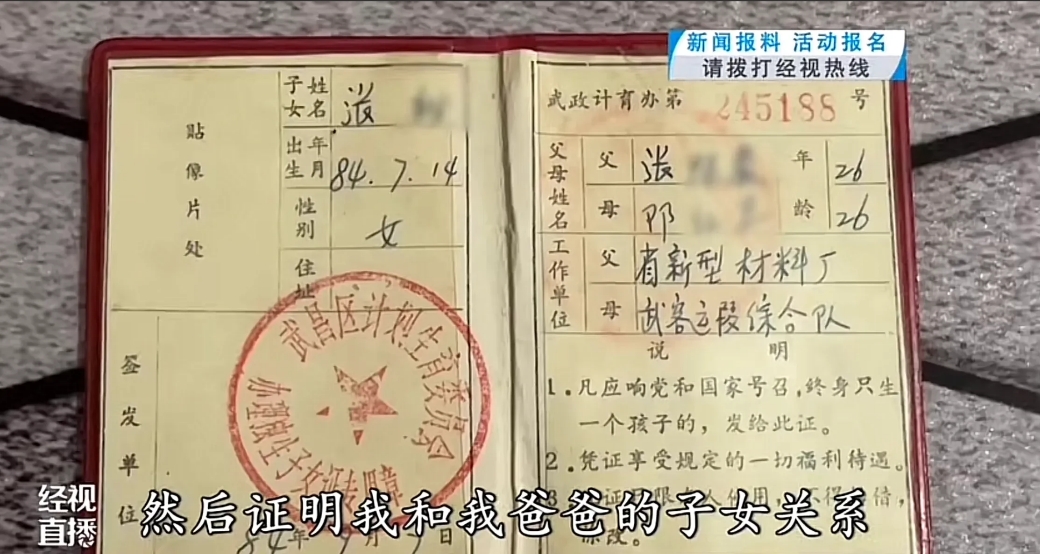 新闻报料 活动报名
请拨打经视热线
贴像片处
子女姓名 张
出生年月 84.7.14
性别 女
住址
签发单位
武昌区计划生育委员会
办理独生子女证专用章
84年 月 日
武政计育办第 245188 号
父母姓名 父 张 年龄 26
母 邓 26
工作单位 父 省新型材料厂
母 武客运段综合队
说 明
1.凡应响党和国家号召,终身只生
一个孩子的,发给此证。
2.凭证享受规定的一切福利待遇。
经视
直播
然后证明我和我爸爸的子女关系